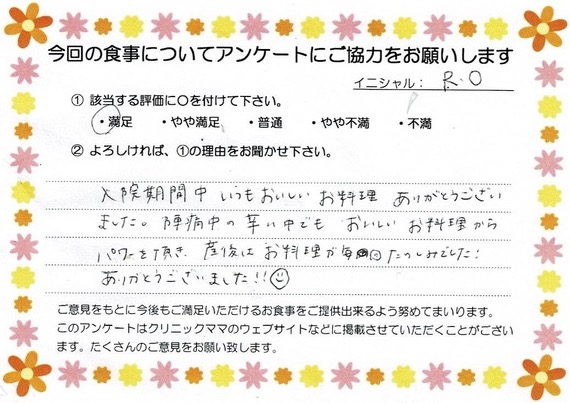 今回の食事についてアンケートにご協力をお願いします
イニシャル： R.O
① 該当する評価に○を付けて下さい。
・満足 ・やや満足 ・普通 ・やや不満 ・不満
② よろしければ、①の理由をお聞かせ下さい。
入院期間中 いつもおいしい お料理 ありがとうござい
ました。陣痛中の辛い中でも おいしい お料理から
パワーを頂き 産後は お料理が毎回 たのしみでした！
ありがとうございました!!
ご意見をもとに今後もご満足いただけるお食事をご提供出来るよう努めてまいります。
このアンケートはクリニックママのウェブサイトなどに掲載させていただくことがござい
ます。たくさんのご意見をお願い致します。